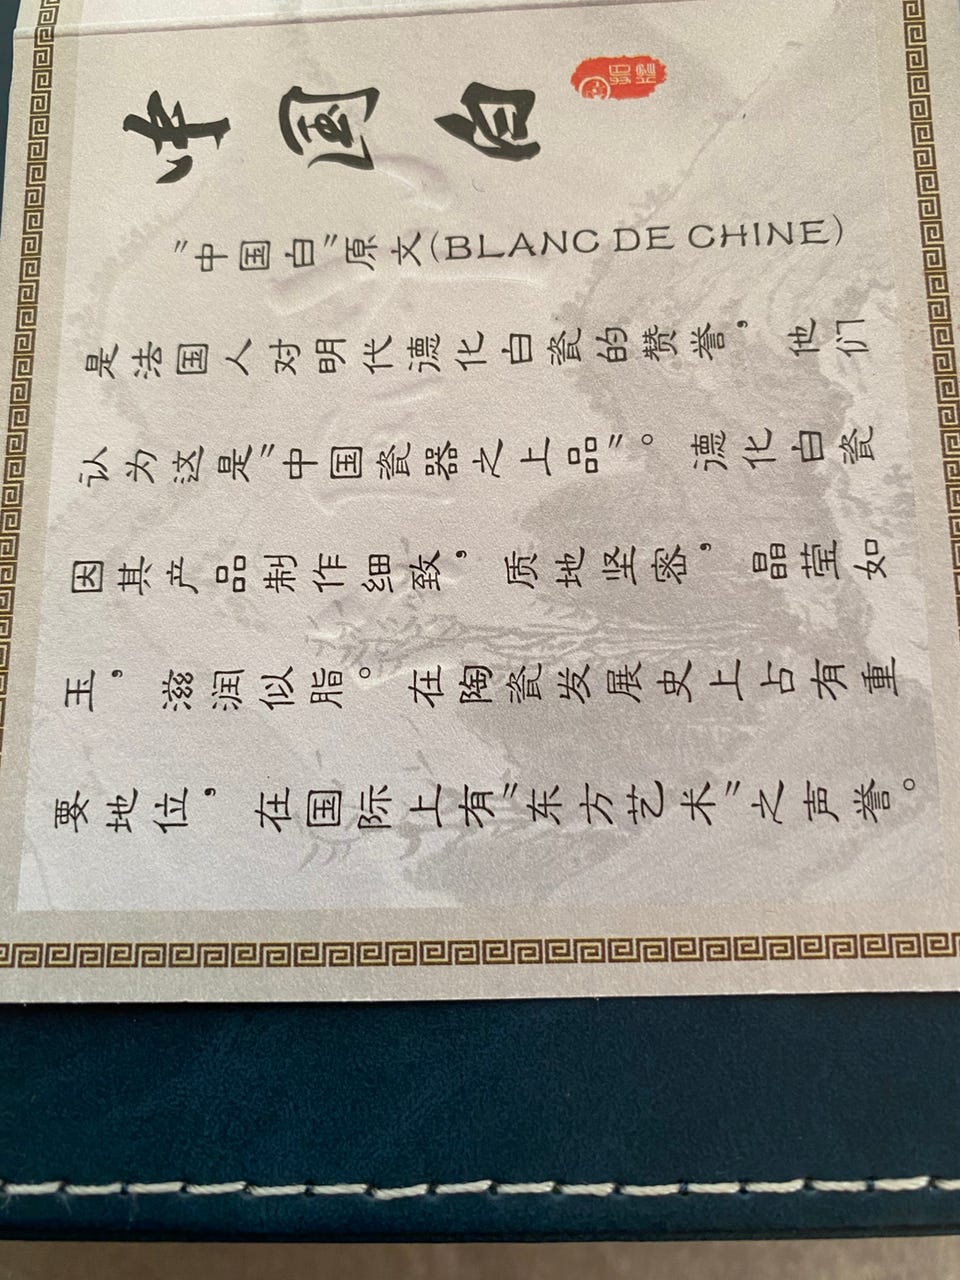 中國白
"中国白"原文(BLANC DE CHINE)
是法国人对明代德化白瓷的赞誉，他们
认为这是"中国瓷器之上品"。德化白瓷
因其产品制作细致，质地坚密，晶莹如
玉，滋润似脂。在陶瓷发展史上占有重
要地位，在国际上有"东方艺术"之声誉。